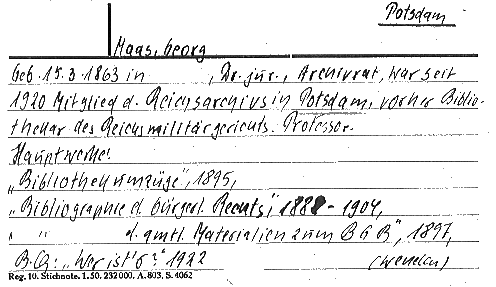 Potsdam
Haas, Georg
geb. 15.3.1863 in , Dr. jur., Archivrat, war seit
1920 Mitglied d. Reichsarchivs in Potsdam, vorher Biblio-
thekar des Reichsmilitärgerichts. Professor.
Hauptwerke:
„Bibliothekumzüge", 1895,
„Bibliographie d. bürgerl. Rechts", 1888 - 1904,
„ „ d. amtl. Materialien zum BGB", 1897,
B.Q.: „Wer ist's?" 1922
Reg. 10. Stichnote. 1. 50. 232 000. A. 803. S. 4062